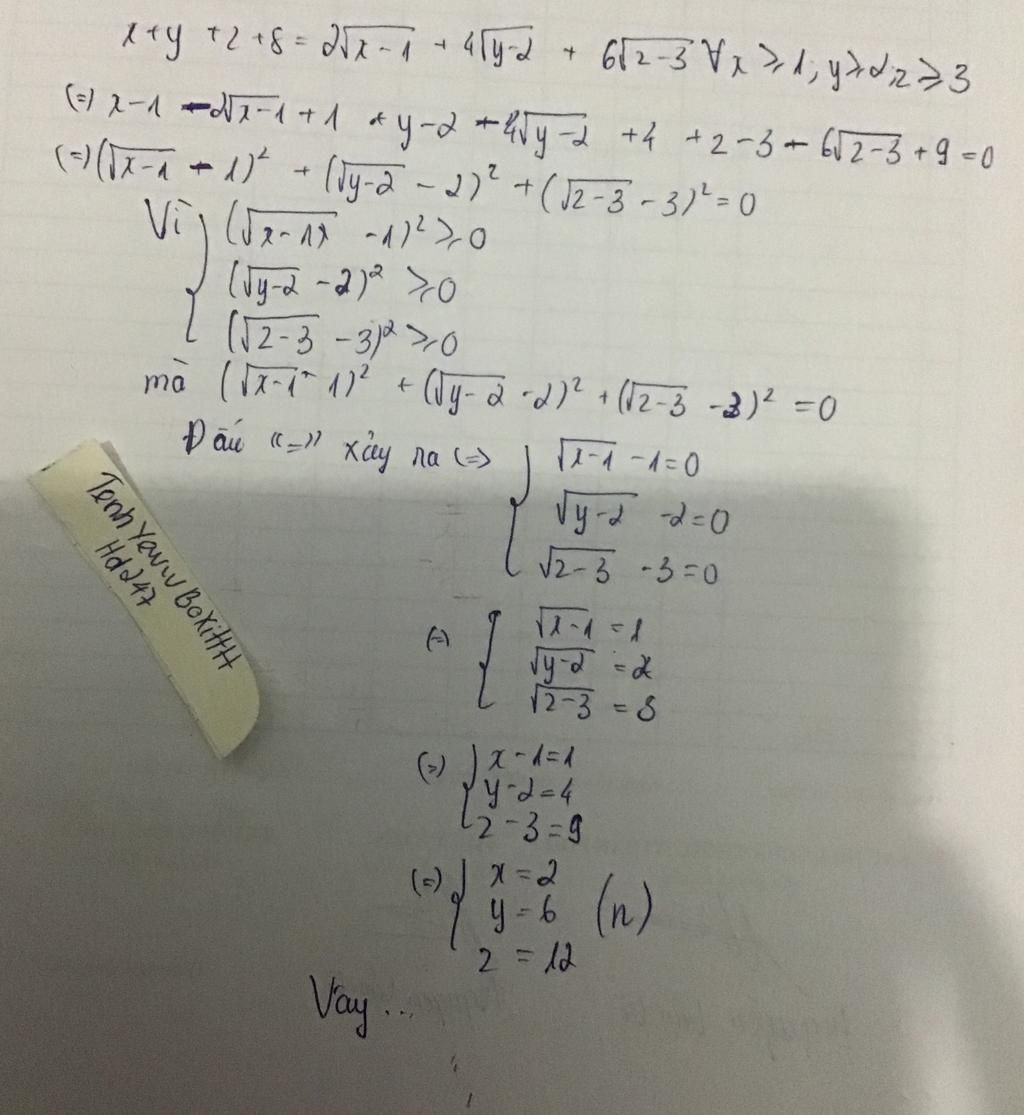 x+y+z+8 = 2√(x-1) + 4√(y-2) + 6√(z-3) ∀x ≥ 1; y ≥ 2; z ≥ 3
(=) x-1 - 2√(x-1) + 1 + y-2 - 4√(y-2) + 4 + z-3 - 6√(z-3) + 9 = 0
(=) (√(x-1) - 1)² + (√(y-2) - 2)² + (√(z-3) - 3)² = 0
Vì { (√(x-1) - 1)² ≥ 0
(√(y-2) - 2)² ≥ 0
(√(z-3) - 3)² ≥ 0
mà (√(x-1) - 1)² + (√(y-2) - 2)² + (√(z-3) - 3)² = 0
Dấu "=" xảy ra (=) { √(x-1) - 1 = 0
√(y-2) - 2 = 0
√(z-3) - 3 = 0
(=) { √(x-1) = 1
√(y-2) = 2
√(z-3) = 3
(=) { x-1 = 1
y-2 = 4
z-3 = 9
(=) { x = 2
y = 6 (n)
z = 12
Vậy ...
Hd247